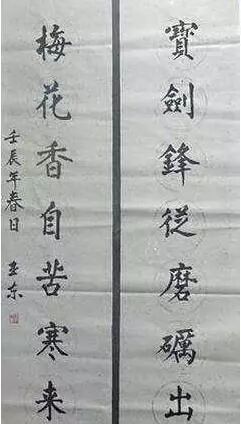 寶劍鋒從磨礪出
梅花香自苦寒来
壬辰年春日 王东